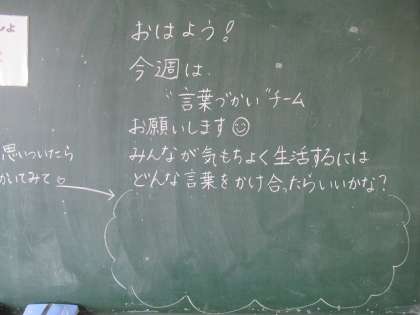 おはよう!
今週は
"言葉づかい"チーム
お願いします☺
みんなが気もちよく生活するには
どんな言葉をかけ合ったらいいかな?
思いついたら
かいてみて♡